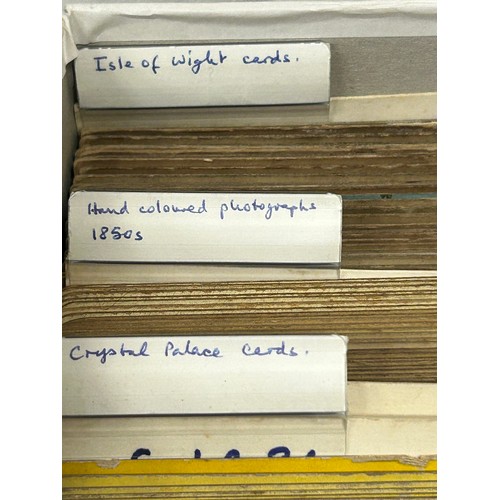 Isle of Wight cards.
Hand coloured photographs
1850s
Crystal Palace Cards.